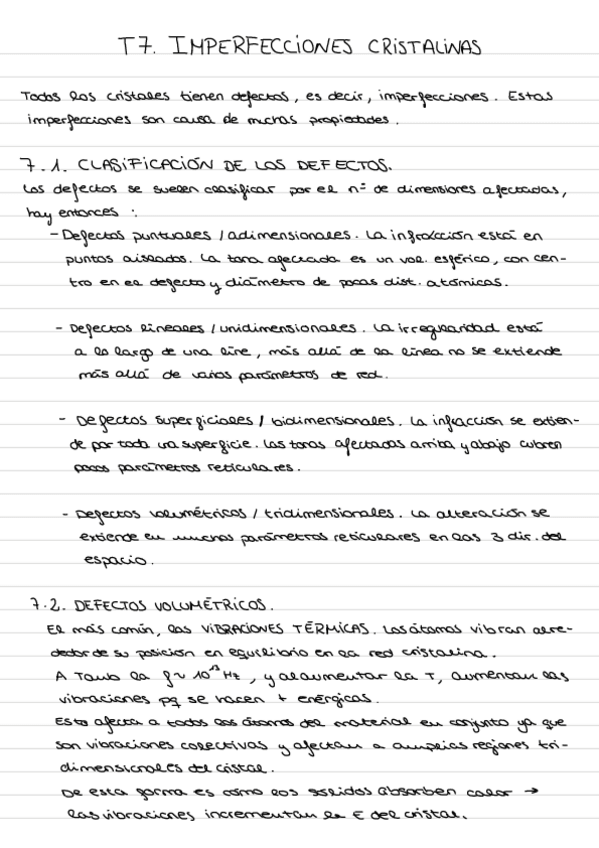 T7. IMPERFECCIONES CRISTALINAS
Todos los cristales tienen defectos, es decir, imperfecciones. Estas
imperfecciones son causa de muchas propiedades.
7.1. CLASIFICACIÓN DE LOS DEFECTOS.
Los defectos se suelen clasificar por el nº de dimensiones afectadas,
hay entonces :
- Defectos puntuales / adimensionales. La infracción está en
puntos aislados. La zona afectada es un vol. esférico, con cen-
tro en el defecto y diámetro de pocas dist. atómicas.
- Defectos lineales / unidimensionales. La irregularidad está
a lo largo de una líne, más allá de la línea no se extiende
más allá de varios parámetros de red.
- Defectos superficiales / bidimensionales. La infracción se extien-
de por toda una superficie. Las zonas afectadas arriba y abajo cubren
pocos parámetros reticulares.
- Defectos volumétricos / tridimensionales. La alteración se
extiende en muchos parámetros reticulares en las 3 dir. del
espacio.
7.2. DEFECTOS VOLUMÉTRICOS.
El más común, las VIBRACIONES TÉRMICAS. Los átomos vibran alre-
dedor de su posición en equilibrio en la red cristalina.
A Tamb la f ~ 10¹³ Hz , y al aumentar la T, aumentan las
vibraciones pq se hacen + enérgicas.
Esto afecta a todos los átomos del material en conjunto ya que
son vibraciones colectivas y afectan a amplias regiones tri-
dimensionales del cristal.
De esta forma es como los sólidos absorben calor →
las vibraciones incrementan la E del cristal.